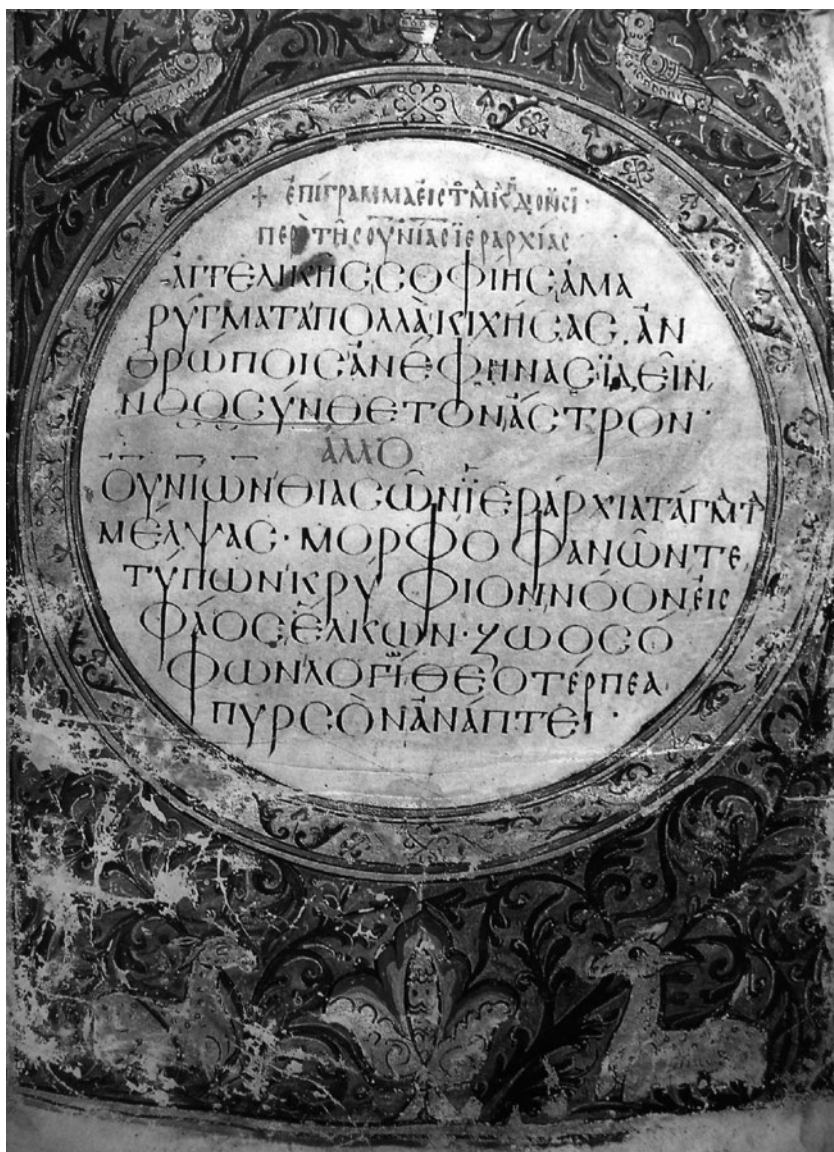 + ἐπίγραμμα εἰς τ μ ἁγ διονύσι·
περὶ τῆς οὐνίας ἱεραρχίας
ἀγγελικῆς σοφίης ἀμα
ρύγματα πολλὰ κιχήσας, ἀν
θρώποις ἀνέφηνας ἰδεῖν,
νοοσύνθετον ἄστρον·
ἄλλο
οὐνίων θιασῶν ἱεραρχια τάγματα
μέλψας· μορφοφανῶν τε
τύπων κρύφιον νόον εἰς
φάος ἕλκων· ζωοσό
φων λογίων θεοτερπέα
πυρσὸν ἀνάπτει·